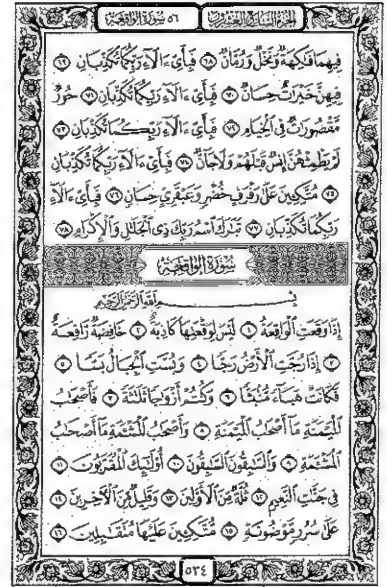 الجزء السابع والعشرون ٥٦ سورة الواقعة
فِيهِمَا فَٰكِهَةٌ وَنَخْلٌ وَرُمَّانٌ ٦٨ فَبِأَيِّ ءَالَآءِ رَبِّكُمَا تُكَذِّبَانِ ٦٩
فِيهِنَّ خَيْرَٰتٌ حِسَانٌ ٧٠ فَبِأَيِّ ءَالَآءِ رَبِّكُمَا تُكَذِّبَانِ ٧١ حُورٌ
مَّقْصُورَٰتٌ فِي الْخِيَامِ ٧٢ فَبِأَيِّ ءَالَآءِ رَبِّكُمَا تُكَذِّبَانِ ٧٣
لَمْ يَطْمِثْهُنَّ إِنسٌ قَبْلَهُمْ وَلَا جَآنٌّ ٧٤ فَبِأَيِّ ءَالَآءِ رَبِّكُمَا تُكَذِّبَانِ
٧٥ مُتَّكِـِٔينَ عَلَىٰ رَفْرَفٍ خُضْرٍ وَعَبْقَرِيٍّ حِسَانٍ ٧٦ فَبِأَيِّ ءَالَآءِ
رَبِّكُمَا تُكَذِّبَانِ ٧٧ تَبَٰرَكَ اسْمُ رَبِّكَ ذِي الْجَلَٰلِ وَالْإِكْرَامِ ٧٨
سُورَةُ الْوَاقِعَةِ
بِسْمِ اللَّهِ الرَّحْمَٰنِ الرَّحِيمِ
إِذَا وَقَعَتِ الْوَاقِعَةُ ١ لَيْسَ لِوَقْعَتِهَا كَاذِبَةٌ ٢ خَافِضَةٌ رَّافِعَةٌ
٣ إِذَا رُجَّتِ الْأَرْضُ رَجًّا ٤ وَبُسَّتِ الْجِبَالُ بَسًّا ٥
فَكَانَتْ هَبَآءً مُّنۢبَثًّا ٦ وَكُنتُمْ أَزْوَٰجًا ثَلَٰثَةً ٧ فَأَصْحَٰبُ
الْمَيْمَنَةِ مَآ أَصْحَٰبُ الْمَيْمَنَةِ ٨ وَأَصْحَٰبُ الْمَشْـَٔمَةِ مَآ أَصْحَٰبُ
الْمَشْـَٔمَةِ ٩ وَالسَّٰبِقُونَ السَّٰبِقُونَ ١٠ أُو۟لَٰٓئِكَ الْمُقَرَّبُونَ ١١
فِي جَنَّٰتِ النَّعِيمِ ١٢ ثُلَّةٌ مِّنَ الْأَوَّلِينَ ١٣ وَقَلِيلٌ مِّنَ الْءَاخِرِينَ ١٤
عَلَىٰ سُرُرٍ مَّوْضُونَةٍ ١٥ مُّتَّكِـِٔينَ عَلَيْهَا مُتَقَٰبِلِينَ ١٦
٥٣٤